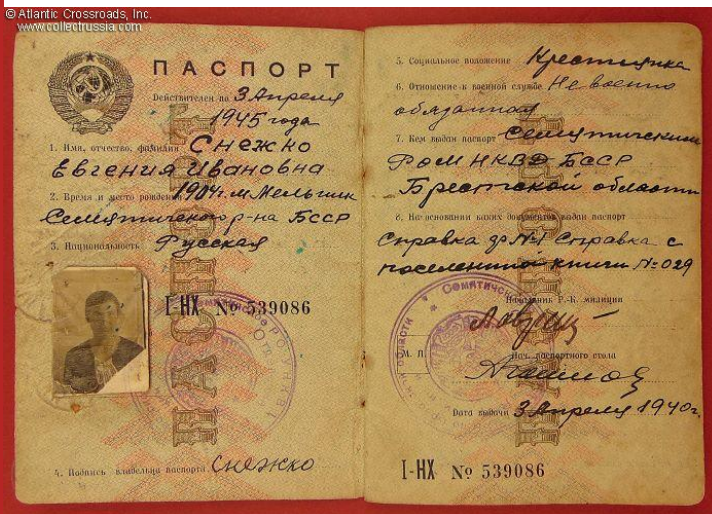 © Atlantic Crossroads, Inc.
www.collectrussia.com
ПАСПОРТ
Действителен по 3 Апреля
1945 года
1. Имя, отчество, фамилия Снежко
Евгения Ивановна
2. Время и место рождения 1904 г. м. Мельник
Семятичского р-на БССР
3. Национальность Русская
I-НХ № 539086
4. Подпись владельца паспорта Снежко
5. Социальное положение Крестьянка
6. Отношение к военной службе Не военно
обязанная
7. Кем выдан паспорт Семятическим
РОМ НКВД БССР
Брестской области
8. На основании каких документов выдан паспорт
Справка ф №1 Справка с
поселенной книги № 029
Начальник Р.-К. милиции
М. П.
Нач. паспортного стола
Дата выдачи 3 Апреля 1940 г.
I-НХ № 539086